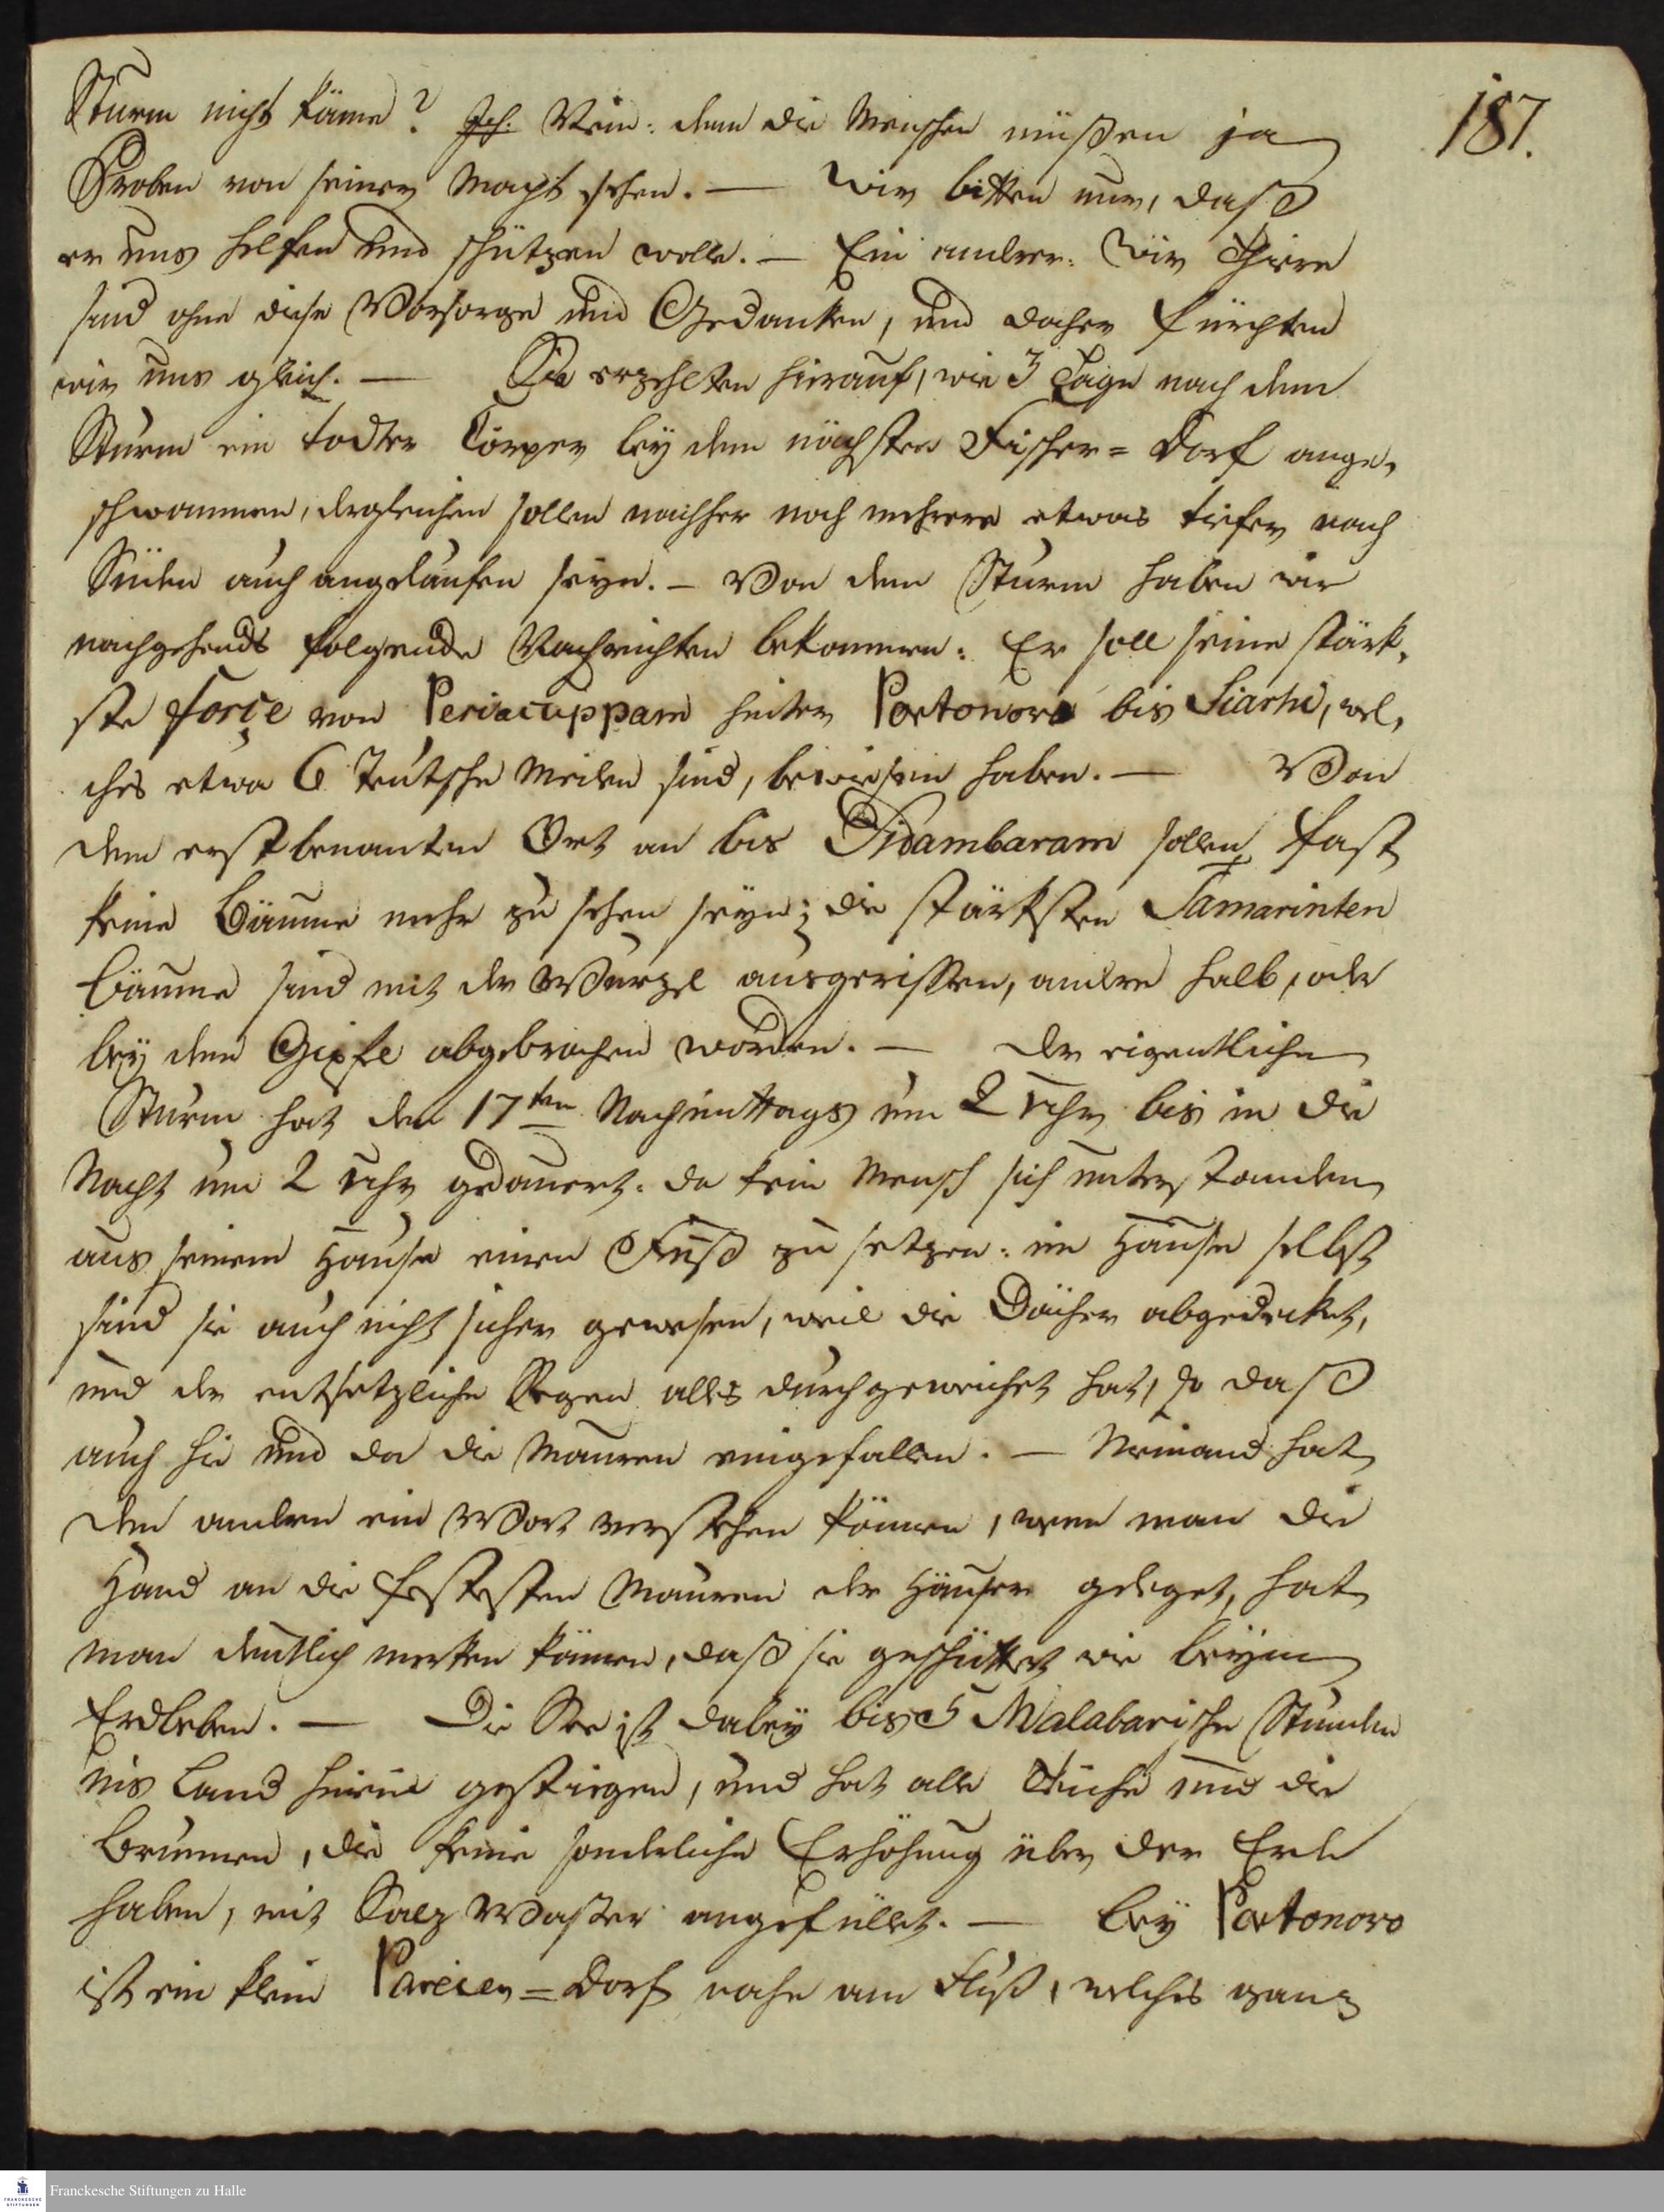 187.
Sturm nicht käme? Ich: Nein: denn die Menschen müßen ja
Proben von seiner Macht sehen. — Wir bitten nur, daß
er uns helfen und schützen wolle. — Ein andrer: Wir Thiere
sind ohne diese Vorsorge und Gedanken, und daher fürchten
wir uns gleich. — Sie erzehlten hierauf, wie 3 Tage nach dem
Sturm ein todter Cörper bey dem nächsten Fischer = Dorf ange,
schwommen, dergleichen sollen nachher noch mehrere etwas tiefer nach
Süden auch angelaufen seyn. — Von dem Sturm haben wir
nachgehends folgende Nachrichten bekommen: Er soll seine stärk,
ste force von Periacuppam hinter Portonovo bis Siarhi, wel,
ches etwa 6 Teutsche Meilen sind, bewiesen haben. — Von
dem erstbenanten Ort an bis Sidambaram sollen fast
keine Bäume mehr zu sehen seyn; die stärksten Tamarinten
Bäume sind mit der Wurzel ausgerissen, andere halb, oder
bey dem Gipfel abgebrochen worden. — Der eigentliche
Sturm hat den 17ten Nachmittags um 2 Uhr bis in die
Nacht um 2 Uhr gedauert. da kein Mensch sich unterstanden
aus seinem Hause einen Fuß zu setzen: im Hause selbst
sind sie auch nicht sicher gewesen, weil die Dächer abgedecket,
und der entsetzliche Regen alles durchgeweichet hat, so daß
auch hie und da die Mauren eingefallen. — Niemand hat
den andern ein Wort verstehen können, wenn man die
Hand an die festesten Mauren der Häuser geleget, hat
man deutlich merken können, daß sie geschüttert wie beym
Erdbeben. — Die See ist dabey bis 5 Malabarische Stunden
ins Land hinein gestiegen, und hat alle Teiche und die
Brunnen, die keine sonderliche Erhöhung über der Erde
haben, mit Salz Waßer angefüllet. — Bey Portonovo
ist ein klein Pareier = Dorf nahe am Fluß, welches ganz
Franckesche Stiftungen zu Halle